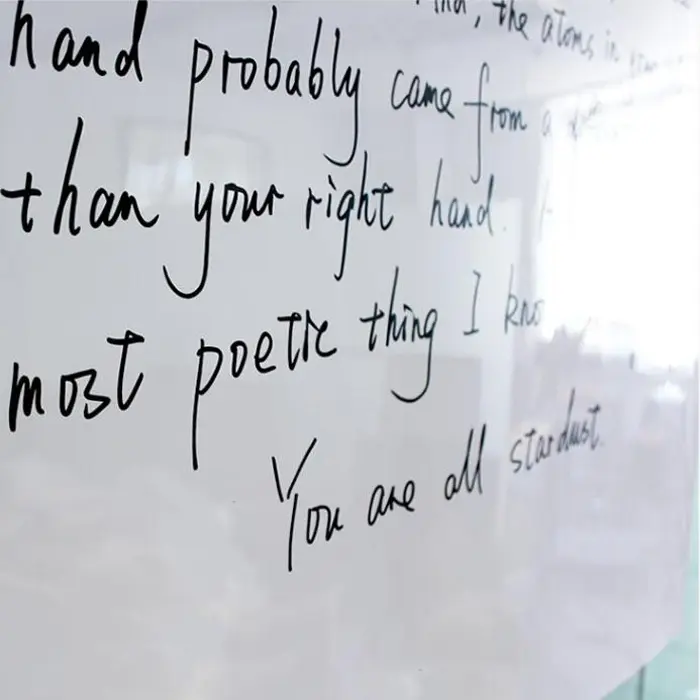 the atoms in
hand probably came from a
than your right hand.
most poetic thing I kno
You are all stardust.